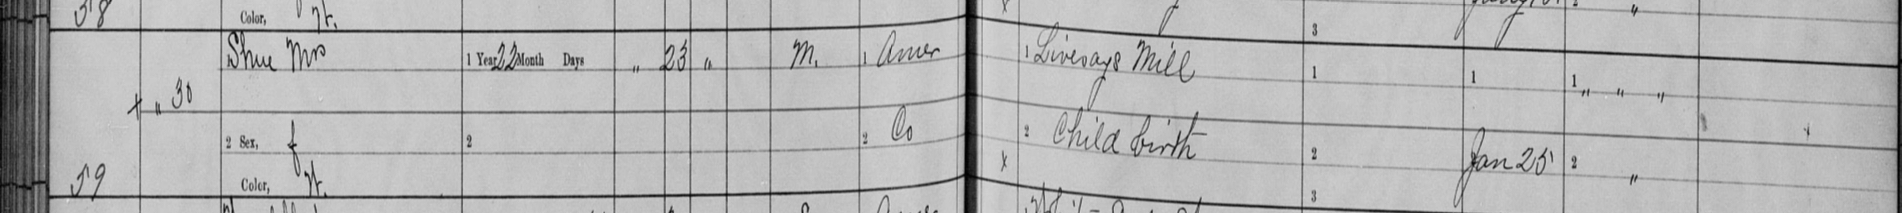 58 Color, W.
3
Shue Mrs 1 Year 22 Month Days " 23 " M. 1 Amer 1 Livesays Mill 1 1 1 " " "
+ " 30
2 Sex, f 2 2 Co 2 Child birth 2 Jan 25 2 "
59 Color, W. x 3